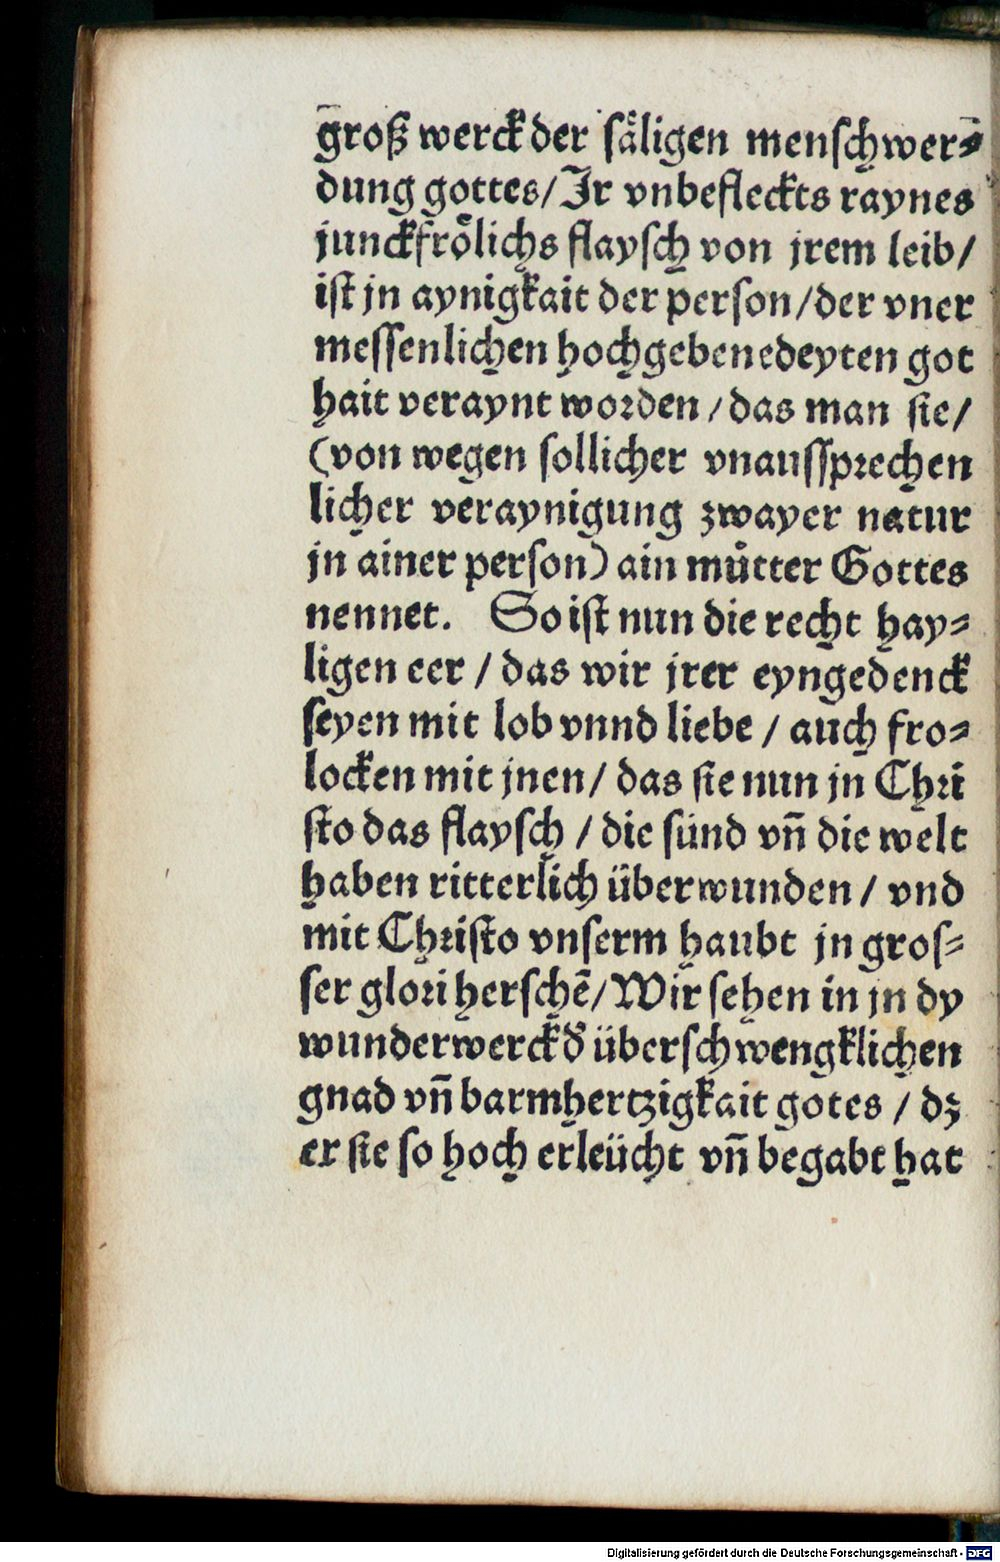 groß werck der ſaͤligen menſchwer⸗
dung gottes/Jr vnbefleckts raynes
junckfroͤlichs flayſch von jrem leib/
iſt jn aynigkait der perſon/der vner
meſſenlichen hochgebenedeyten got
hait veraynt woꝛden/das man ſie/
(von wegen ſollicher vnausſpꝛechen
licher veraynigung zwayer natur
jn ainer perſon) ain muͤtter Gottes
nennet. So iſt nun die recht hay⸗
ligen eer / das wir jrer eyngedenck
ſeyen mit lob vnnd liebe / auch fro⸗
locken mit jnen/ das ſie nun jn Chꝛi
ſto das flayſch / die ſünd vn̄ die welt
haben ritterlich überwunden / vnd
mit Chꝛiſto vnſerm haubt jn groſ⸗
ſer gloꝛi herſchē/Wir ſehen in jn dy
wunderwerck dˀ überſchwengklichen
gnad vn̄ barmhertzigkait gotes / dz
er ſie ſo hoch erleücht vn̄ begabt hat
Digitalisierung gefördert durch die Deutsche Forschungsgemeinschaft - DFG